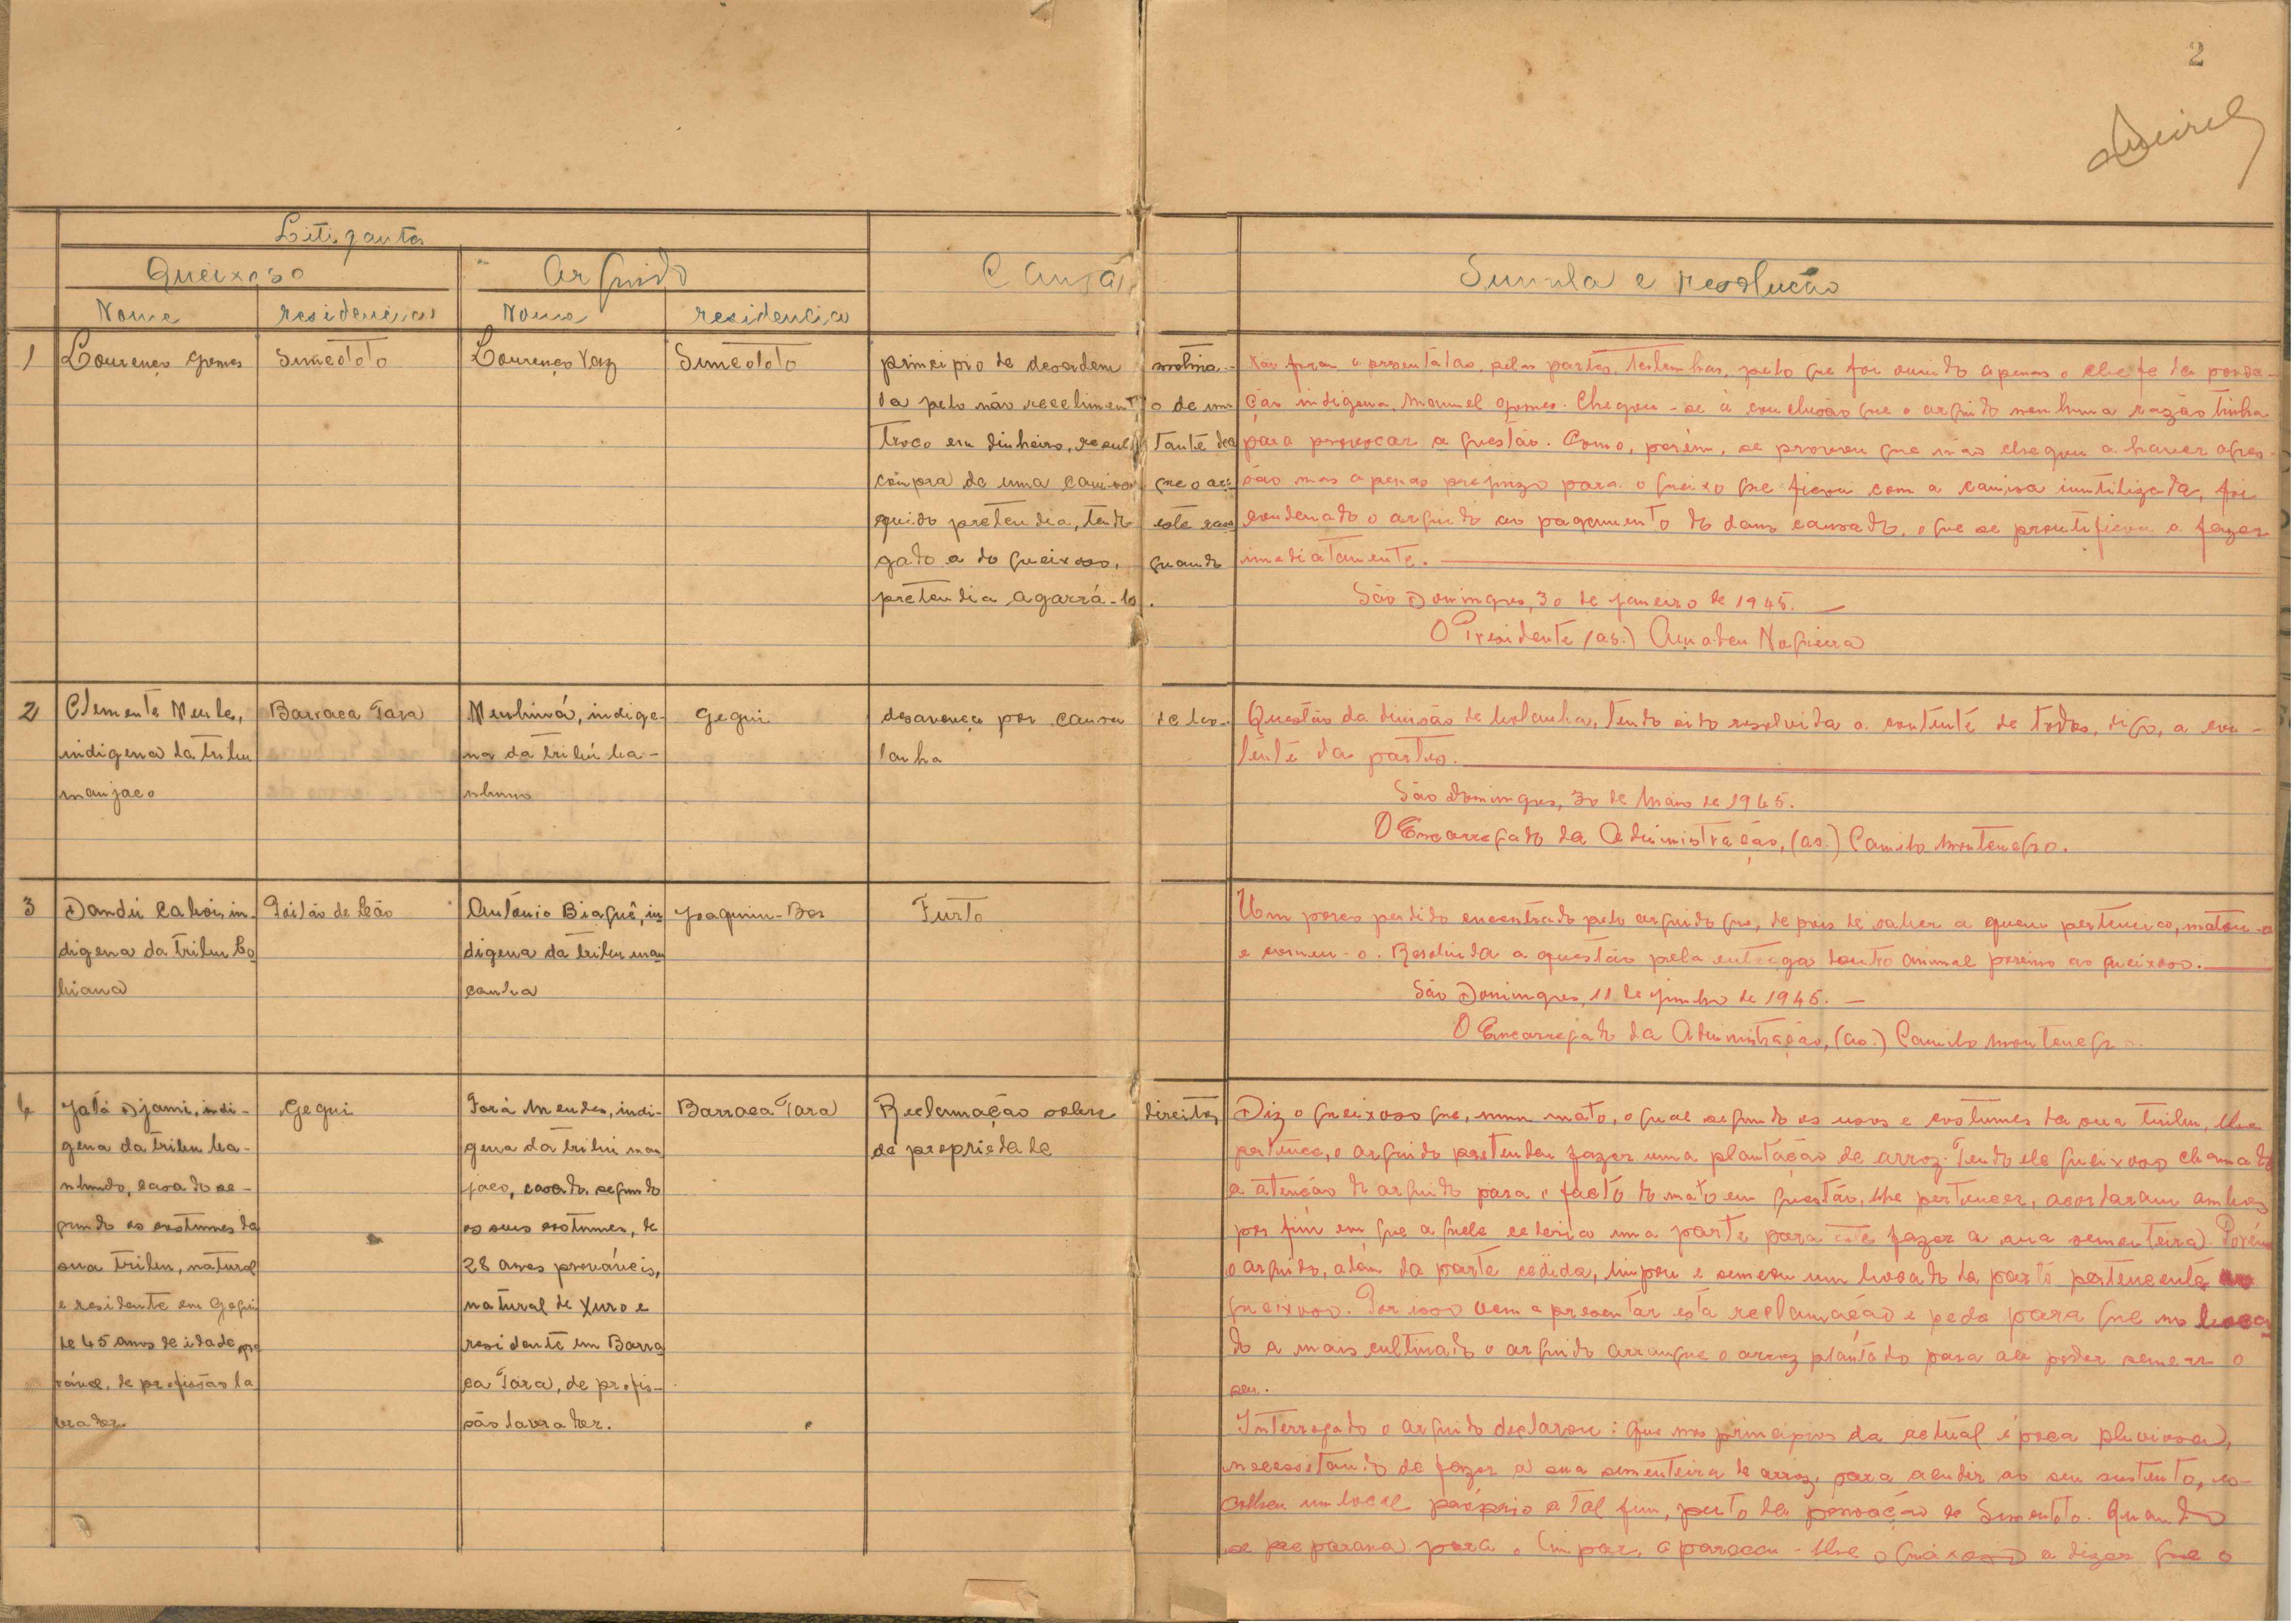 2
Litigantes
Queixoso
Arguido
Causa
Sumula e resolução
Nome
residencias
Nome
residencia
1
Lourenço Gomes
Simedoto
Lourenço Vaz
Simedoto
principio de desordem motiva-
da pelo não recebimento de um
troco em dinheiro, resultante da
cómpra de uma camisa que o ar-
guido pretendia, tendo este ras
gado a do queixoso, quando
pretendia agarrá-lo.
Não foram apresentadas, pelas partes, testemunhas, pelo que foi ouvido apenas o chefe da povoa-
ção indigena, Manuel Gomes. Chegou-se à conclusão que o arguido nenhuma razão tinha
para provocar a questão. Como, porém, se provou que não chegou a haver agres-
são mas apenas prejuizo para o queixo que ficou com a camisa inutilizada, foi
condenado o arguido ao pagamento do dano causado, o que se prontificou a fazer
imediatamente.
São Domingos, 30 de janeiro de 1945.
O Presidente (as.) Amadeu Nogueira
2
Clemente
indigena da tribu
manjaco
Barraca Tara
indige-
na da tribú ba-
nhuno
Gegui
desavença por causa de bo-
lanha
Questão da divisão de bolanha, tendo sido resolvida a contente de todos, digo, a con-
tente das partes.
São Domingos, 30 de Maio de 1945.
O Encarregado da Administração, (as.) Camilo Montenegro.
3
Dandú Cabói, in-
digena da tribu Co
biana
Poilão de Leão
António Biaguê, in
digena da tribu man
canha
Joaquim-Bor
Furto
Um porco perdido encontrado pelo arguido que, depois de saber a quem pertencia, matou-o
e comeu-o. Resolvida a questão pela entrega doutro animal porcino ao queixoso.
São Domingos, 11 de junho de 1945.
O Encarregado da Administração, (as.) Camilo Montenegro
4
Jatá Djami, indi-
gena da tribu ba-
nhundo, casado se-
gundo os costumes da
sua tribu, natural
e residente em Gegui
de 45 anos de idade pro
vável, de profissão la
vrador.
Gegui
Tará Mendes, indi-
gena da tribú man
jaco, casado segundo
os seus costumes, de
28 anos prováveis,
natural de Xuro e
residente em Barra
ca Tara, de profis-
são lavrador.
Barraca Tara
Reclamação sobre direitos
de propriedade
Diz o queixoso que, num mato, o qual segundo os usos e costumes da sua tribu, lhe
pertence, o arguido pretendeu fazer uma plantação de arroz. Tendo ele queixoso chamado
a atenção do arguido para o facto do mato em questão, lhe pertencer, acordaram ambos
por fim em que aquele cederia uma parte para este fazer a sua sementeira. Porém
o arguido, além da parte cedida, limpou e semeou um bocado da parte pertencente ao
queixoso. Por isso vem apresentar esta reclamação e pede para que no boca
do a mais cultivado o arguido arranque o arroz plantado para ele poder semear o
seu.
Interrogado o arguido declarou: Que nos principios da actual época pluviosa,
necessitando de fazer a sua sementeira de arroz, para acudir ao seu sustento, es-
colheu um local próprio a tal fim, perto da povoação de Simedoto. Quando
se preparava para o limpar, apareceu-lhe o queixoso a dizer que o